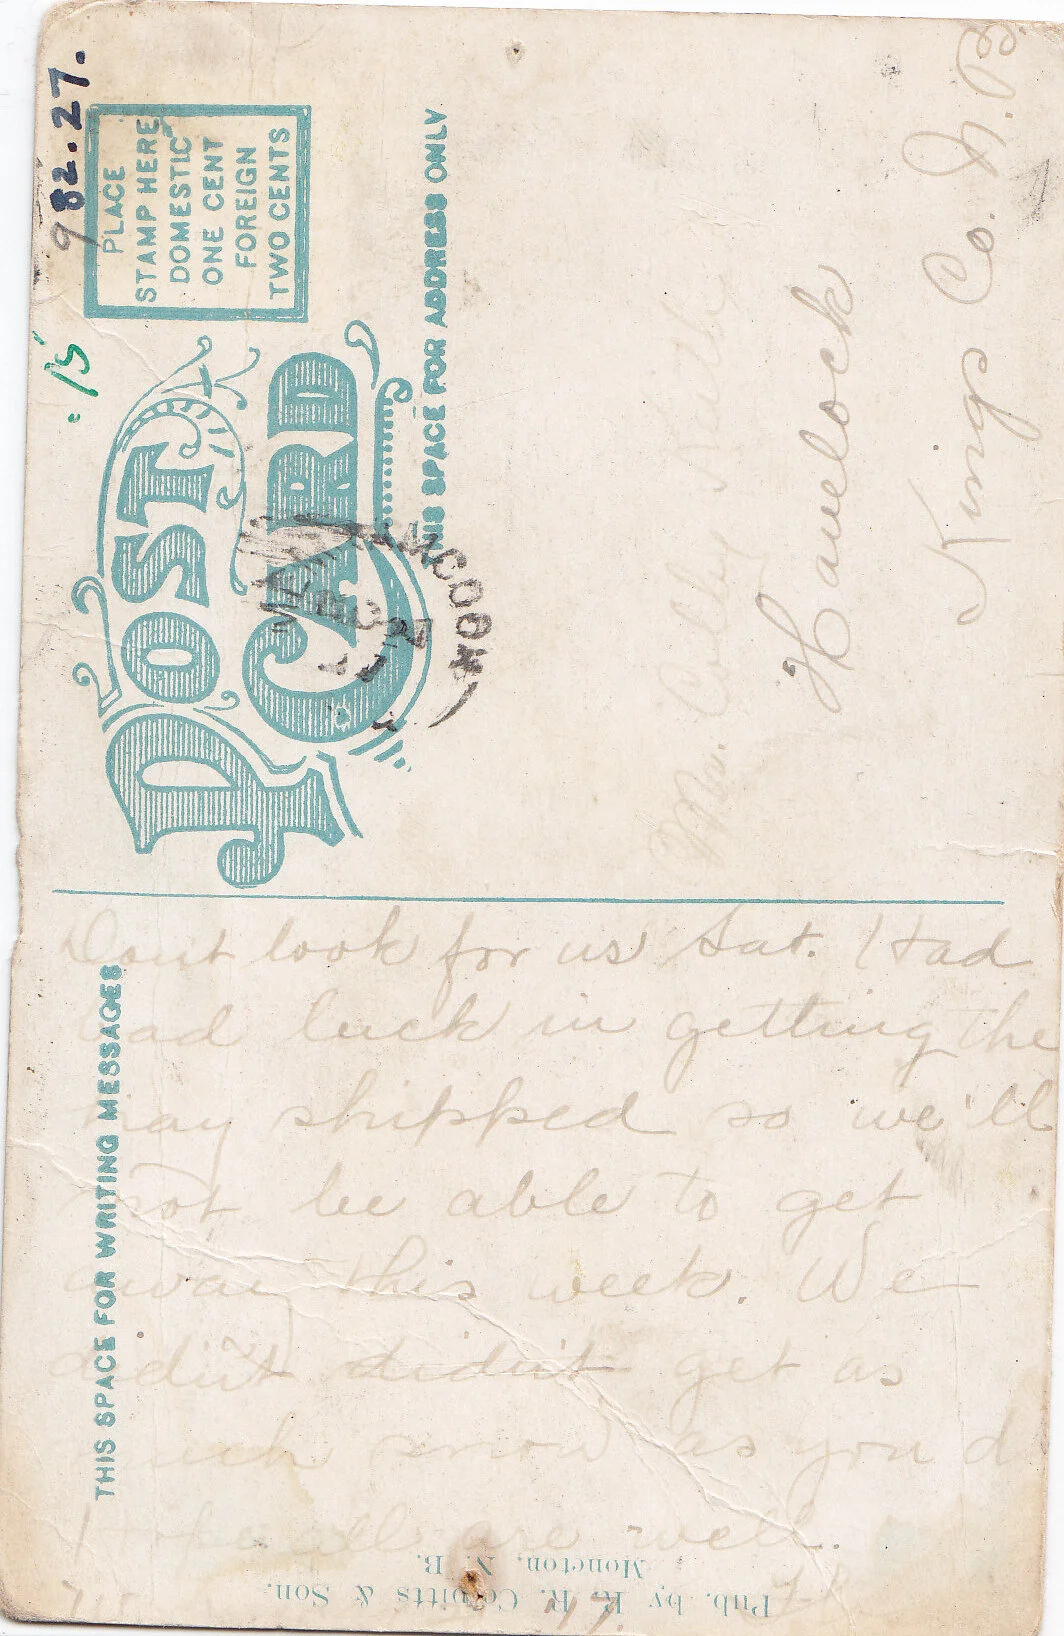 982.27.
.15
PLACE
STAMP HERE
DOMESTIC
ONE CENT
FOREIGN
TWO CENTS
POST CARD
THIS SPACE FOR ADDRESS ONLY
Havelock
Kings Co. N.B.
THIS SPACE FOR WRITING MESSAGES
Dont look for us Sat. Had
bad luck in getting the
hay shipped so we'll
not be able to get
away this week. We
didn't didn't get as
much snow as you d
Hope all are well.
Pub. by R. R. Colpitts & Son.
Moncton, N. B.